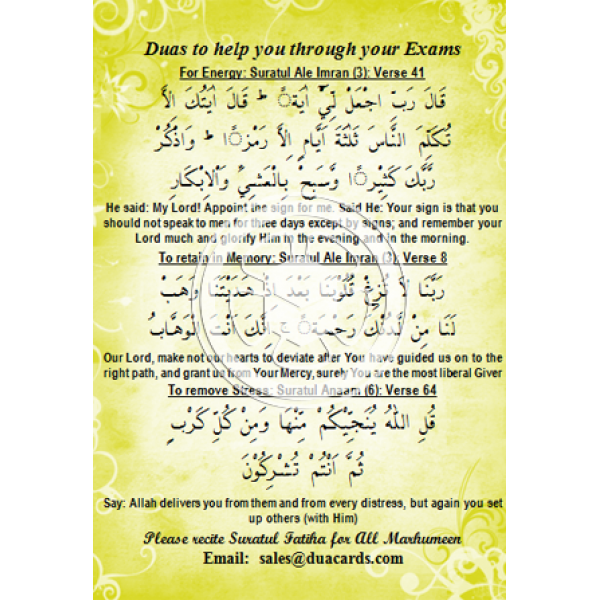 Duas to help you through your Exams
For Energy: Suratul Ale Imran (3): Verse 41
قَالَ رَبِّ اجْعَلْ لِّيْٓ اٰيَةً ؕ قَالَ اٰيَتُكَ اَلَّا
تُكَلِّمَ النَّاسَ ثَلٰثَةَ اَيَّامٍ اِلَّا رَمْزًا ؕ وَاذْكُرْ
رَّبَّكَ كَثِيْرًا وَّسَبِّحْ بِالْعَشِيِّ وَالْاِبْكَارِ
He said: My Lord! Appoint the sign for me. Said He: Your sign is that you
should not speak to men for three days except by signs; and remember your
Lord much and glorify Him in the evening and in the morning.
To retain in Memory: Suratul Ale Imran (3): Verse 8
رَبَّنَا لَا تُزِغْ قُلُوْبَنَا بَعْدَ اِذْ هَدَيْتَنَا وَهَبْ
لَنَا مِنْ لَّدُنْكَ رَحْمَةً ۚ اِنَّكَ اَنْتَ الْوَهَّابُ
Our Lord, make not our hearts to deviate after You have guided us on to the
right path, and grant us from Your Mercy, surely You are the most liberal Giver
To remove Stress: Suratul Anaam (6): Verse 64
قُلِ اللّٰهُ يُنَجِّيْكُمْ مِّنْهَا وَمِنْ كُلِّ كَرْبٍ
ثُمَّ اَنْتُمْ تُشْرِكُوْنَ
Say: Allah delivers you from them and from every distress, but again you set
up others (with Him)
Please recite Suratul Fatiha for All Marhumeen
Email: sales@duacards.com